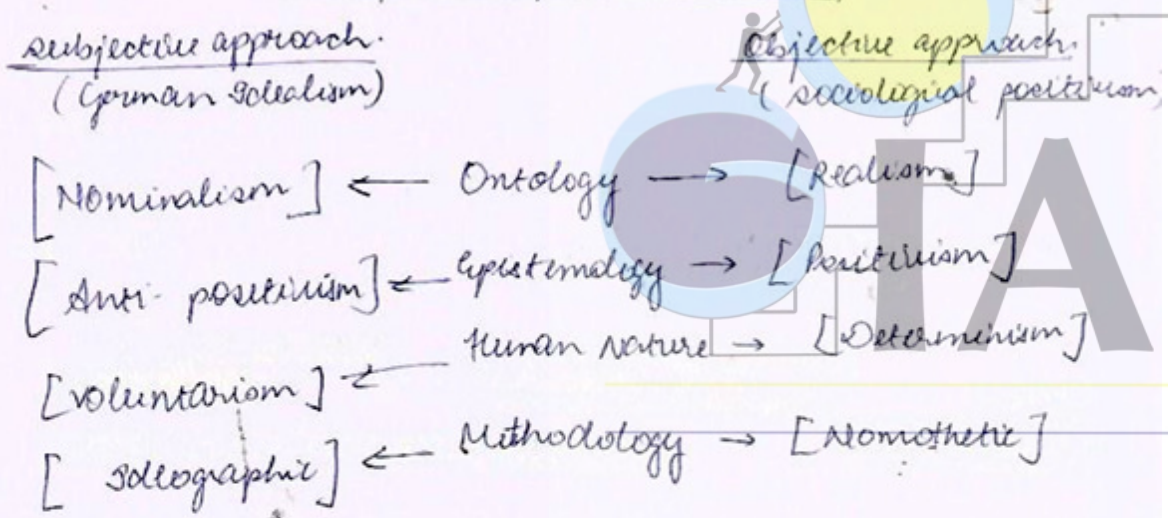 subjective approach. Objective approach.
(German Idealism) (sociological positivism)
[Nominalism] ← Ontology → [Realism]
[Anti-positivism] ← Epistemology → [Positivism]
[Voluntarism] ← Human Nature → [Determinism]
[Ideographic] ← Methodology → [Nomothetic]
IA